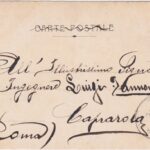 CARTE POSTALE
All' Illustrissimo Signor
Ingegnere Luigi
Caprarola
(Roma)